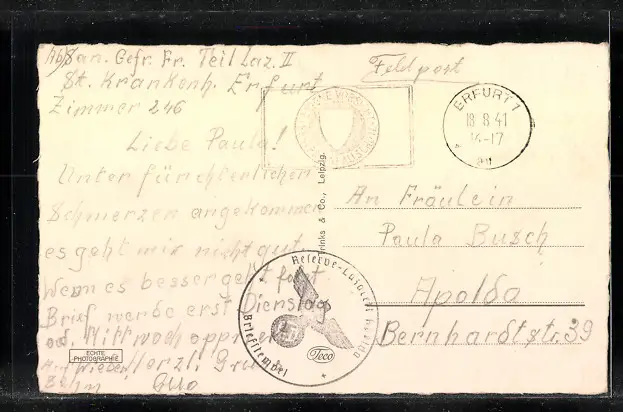 Abs. San. Gefr. Fr. Teil Laz. II
St. Krankenh. Erfurt
Zimmer 246
Liebe Paula!
Unter fürchterlichen
Schmerzen angekommen
es geht mir nicht gut.
Wenn es besser geht folgt
Brief werde erst Dienstag
od. Mittwoch operiert
Auf Wieder
Herzl. Gru
ECHTE
PHOTOGRAPHIE
Feldpost
ERFURT 1
18 8 41
14-17
& Co., Leipzig.
An Fräulein
Paula Busch
Apolda
Bernhardtstr. 39
Reserve-Lazarett
Briefstempel
Teco